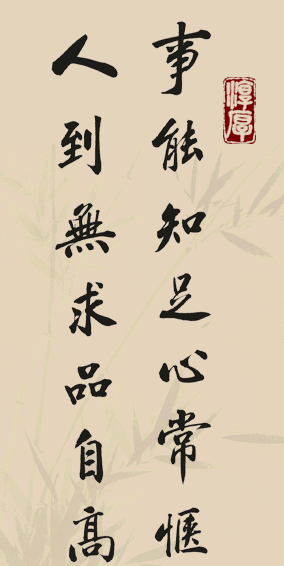 淳厚
事能知足心常惬
人到無求品自高